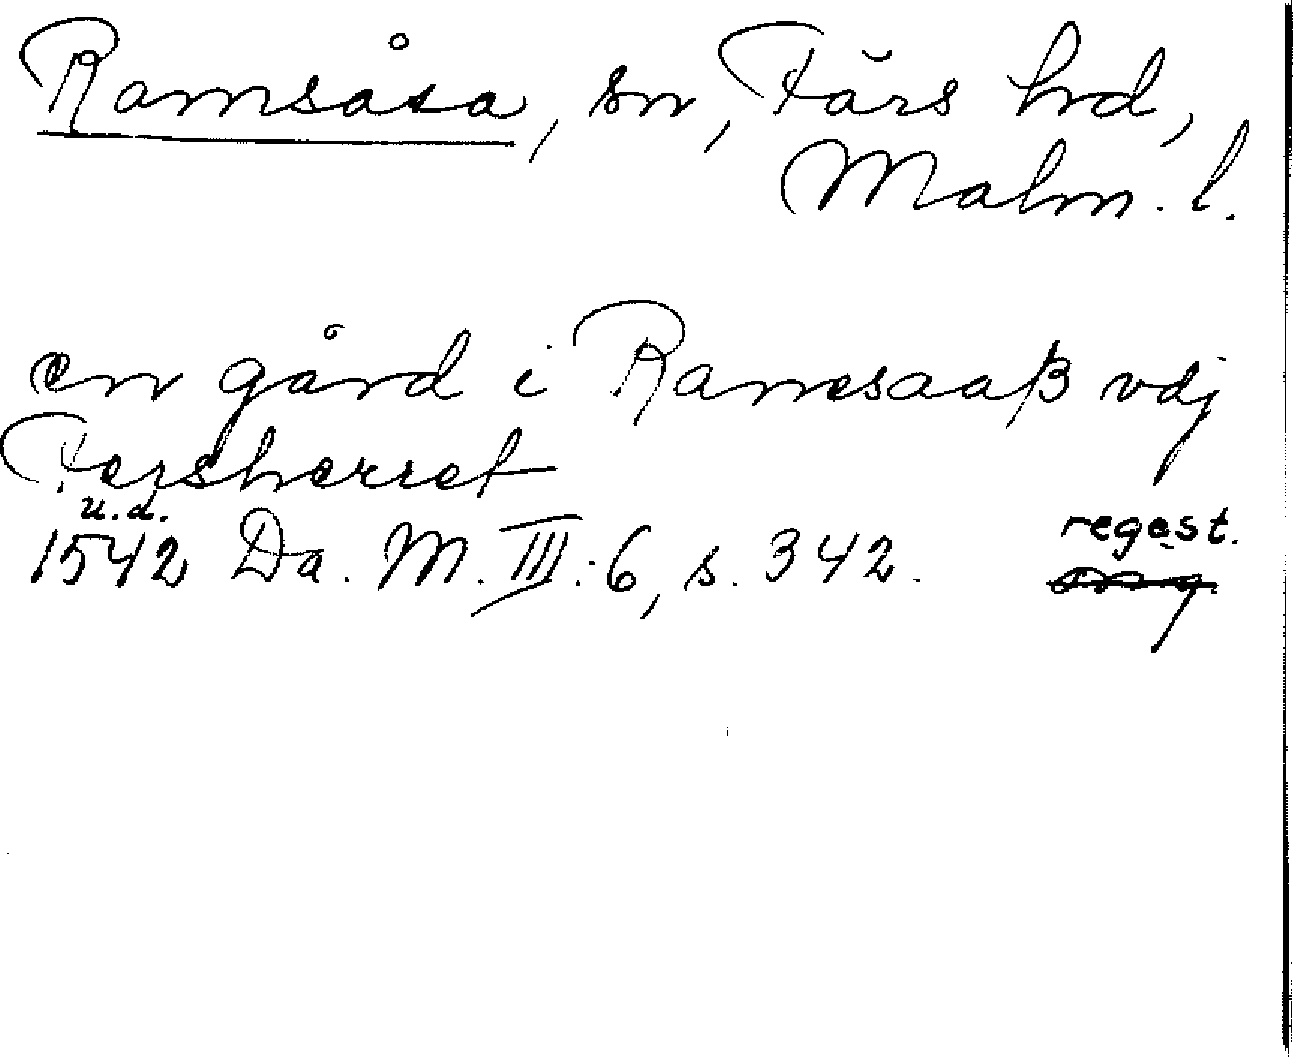 Ramsåsa, sn, Färs hd,
Malm. l.
en gård i Ramsaaß vdj
Fersherret
u.d.
1542 Da. M. III:6, s. 342.
regest.